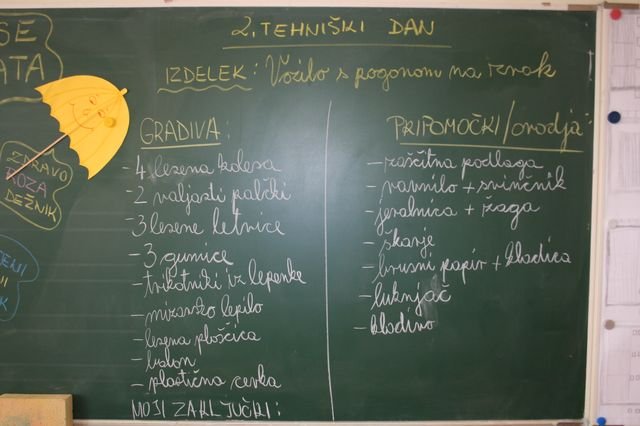 SE
ATA
2. TEHNIŠKI DAN
IZDELEK: Vozilo s pogonom na zrak
ZDRAVO
ROZA
DEŽNIK
GRADIVA:
- 4 lesena kolesa
- 2 valjasti palčki
- 3 lesene letvice
- 3 gumice
- trikotniki iz lepenke
- mizarsko lepilo
- lesena ploščica
- balon
- plastična cevka
MOJI ZAKLJUČKI:
PRIPOMOČKI/orodja:
- zaščitna podlaga
- ravnilo + svinčnik
- jeralnica + žaga
- škarje
- brusni papir + kladica
- luknjač
- kladivo